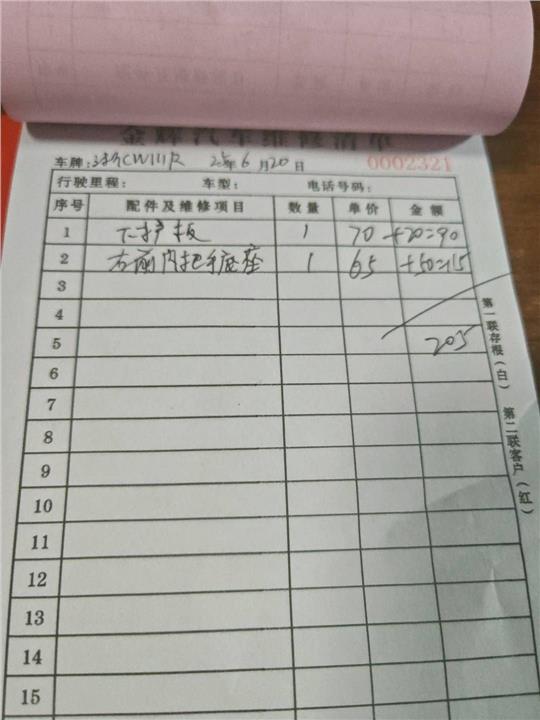 金牌汽车维修清单
车牌: 25年6月20日 0002321
行驶里程: 车型: 电话号码:
序号 配件及维修项目 数量 单价 金额
1 下护板 1 70 +20=90
2 右前内把手底座 1 65 +50=115
3
4
5 205
6
7
8
9
10
11
12
13
14
15
第一联存根(白) 第二联客户(红)